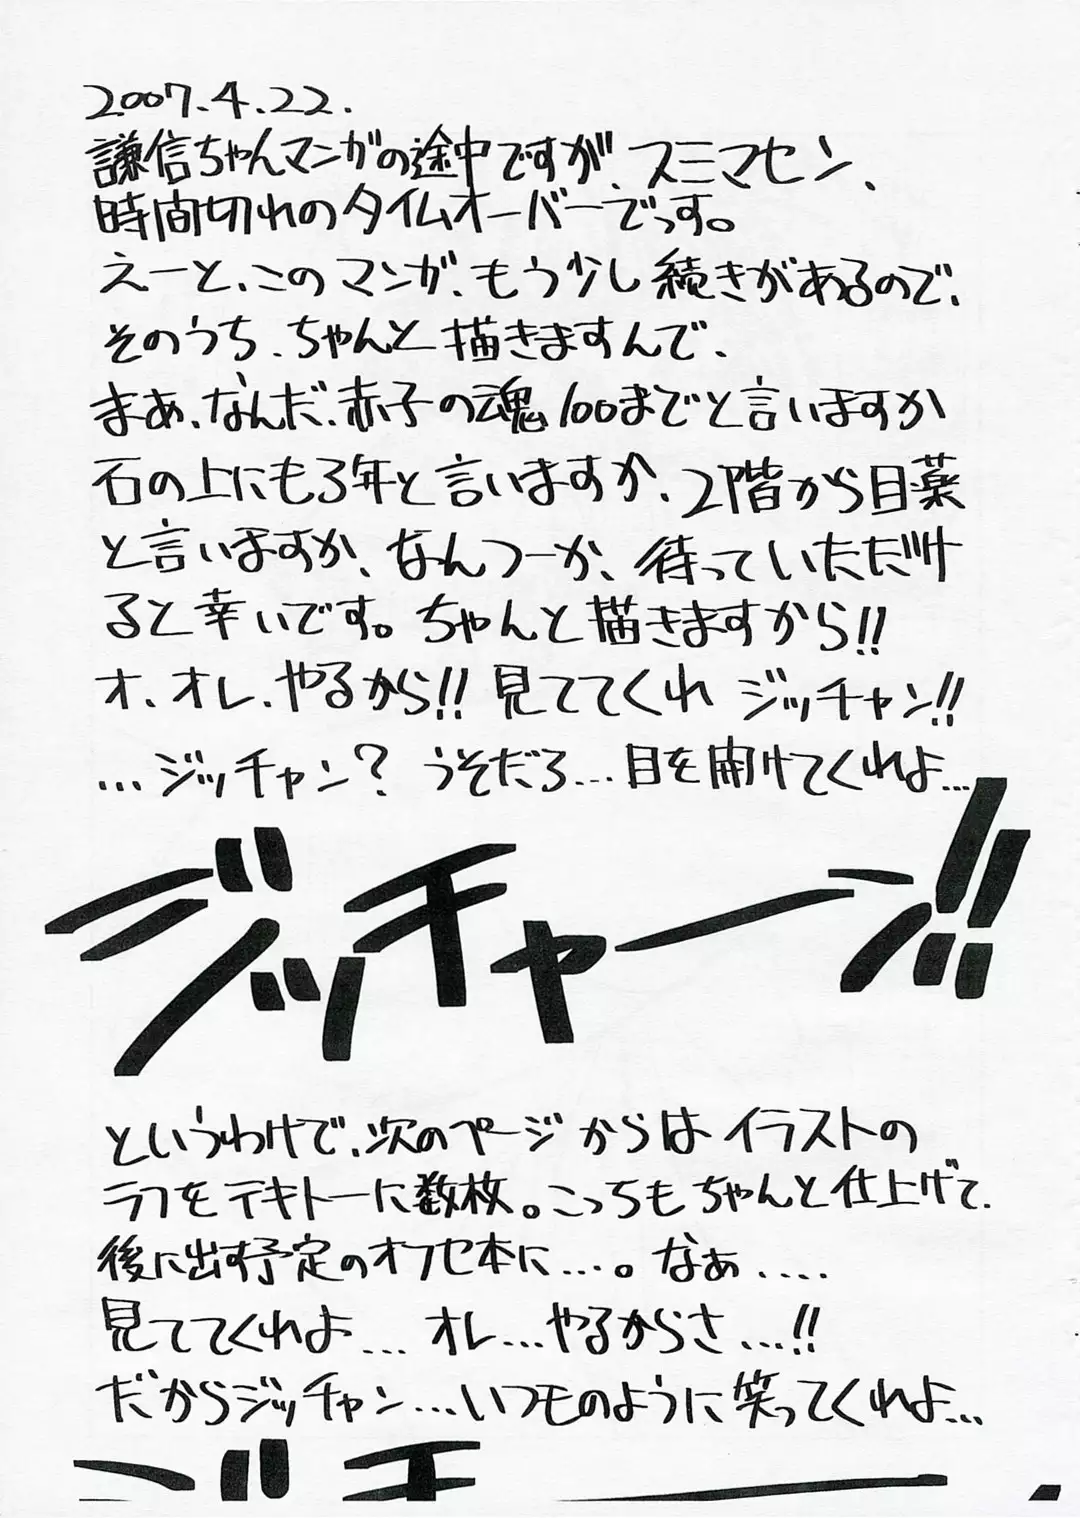 2007.4.22.
謙信ちゃんマンガの途中ですが スミマセン、
時間切れのタイムオーバーでっす。
えーと、このマンガ、もう少し続きがあるので、
そのうち、ちゃんと描きますんで、
まあ、なんだ、赤子の魂100までと言いますか
石の上にも3年と言いますか、2階から目薬
と言いますか、なんつーか、待っていただけ
ると幸いです。ちゃんと描きますから!!
オ、オレ、やるから!! 見ててくれ ジッチャン!!
…ジッチャン? うそだろ…目を開けてくれよ…
ジッチャーン!!
というわけで、次のページからはイラストの
ラフをテキトーに数枚。こっちもちゃんと仕上げて、
後に出す予定のオフセ本に…。なぁ....
見ててくれよ…オレ…やるからさ…!!
だからジッチャン…いつものように笑ってくれよ…